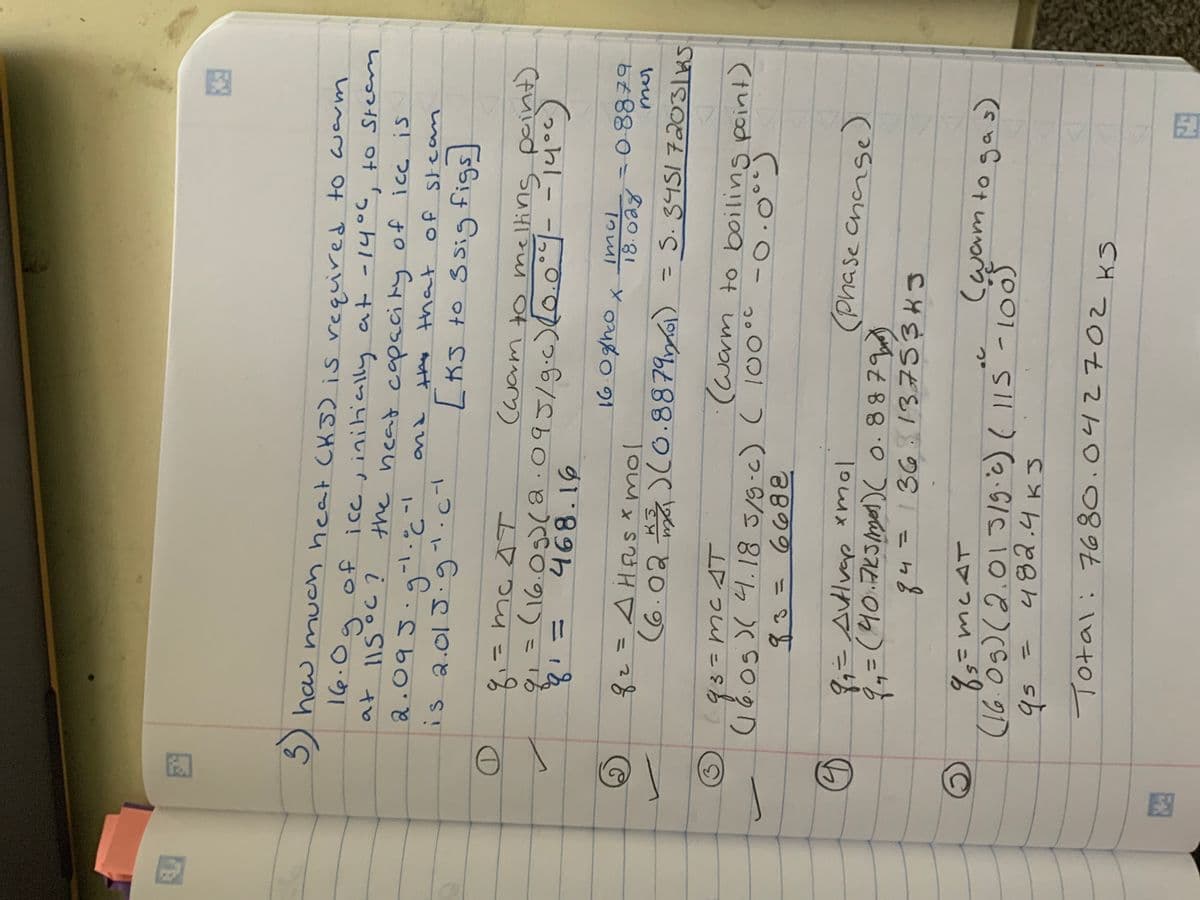 3) how much heat (KJ) is required to warm
16.0g of ice, initially at -14°C, to steam
at 115°C? the heat capacity of ice is
2.09 J·g-1·°C-1 and that of steam
is 2.01 J·g-1·C-1 [KJ to 3 sig figs]
① q1 = mc ΔT (warm to melting point)
✓ q1 = (16.0g)(2.09 J/g·c)(0.0°C - -14°C)
q1 = 468.16
② q2 = ΔHfus x mol 16.0g H2O x 1mol / 18.02g = 0.8879 mol
✓ (6.02 KJ/mol)(0.8879mol) = 5.345172031 KJ
③ q3 = mc ΔT (warm to boiling point)
✓ (16.0g)(4.18 J/g·c)(100°C - 0.0°C)
q3 = 6688
④ q4 = ΔHvap x mol (Phase change)
q4 = (40.7KJ/mol)(0.8879mol)
q4 = 36.13753 KJ
⑤ q5 = mc ΔT (warm to gas)
(16.0g)(2.01 J/g·°C)(115°C - 100°C)
q5 = 482.4 KJ
Total: 7680.042702 KJ